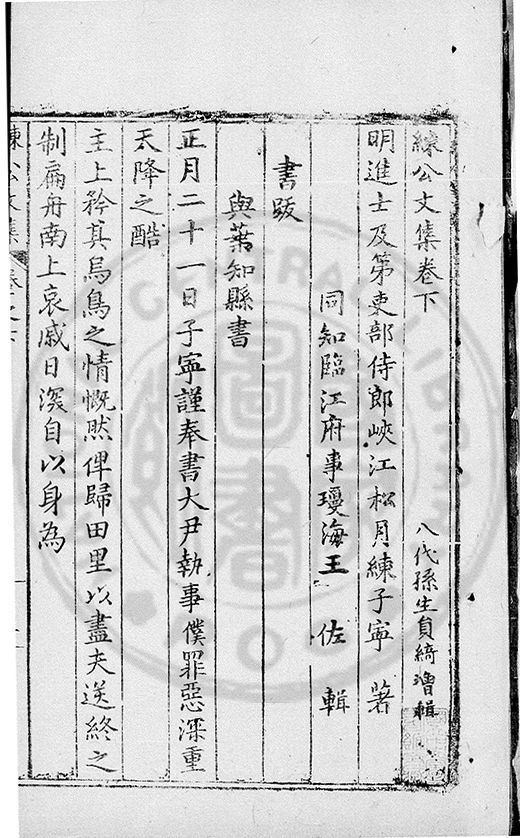 練公文集卷下
八代孫生員綺增輯
明進士及第吏部侍郎峽江松月練子寧 著
同知臨江府事瓊海王 佐 輯
書跋
與葉知縣書
正月二十一日子寧謹奉書大尹執事僕罪惡深重
天降之酷
主上矜其烏鳥之情慨然俾歸田里以盡夫送終之
制扁舟南上哀戚日深自以身為
練公文集 卷之下